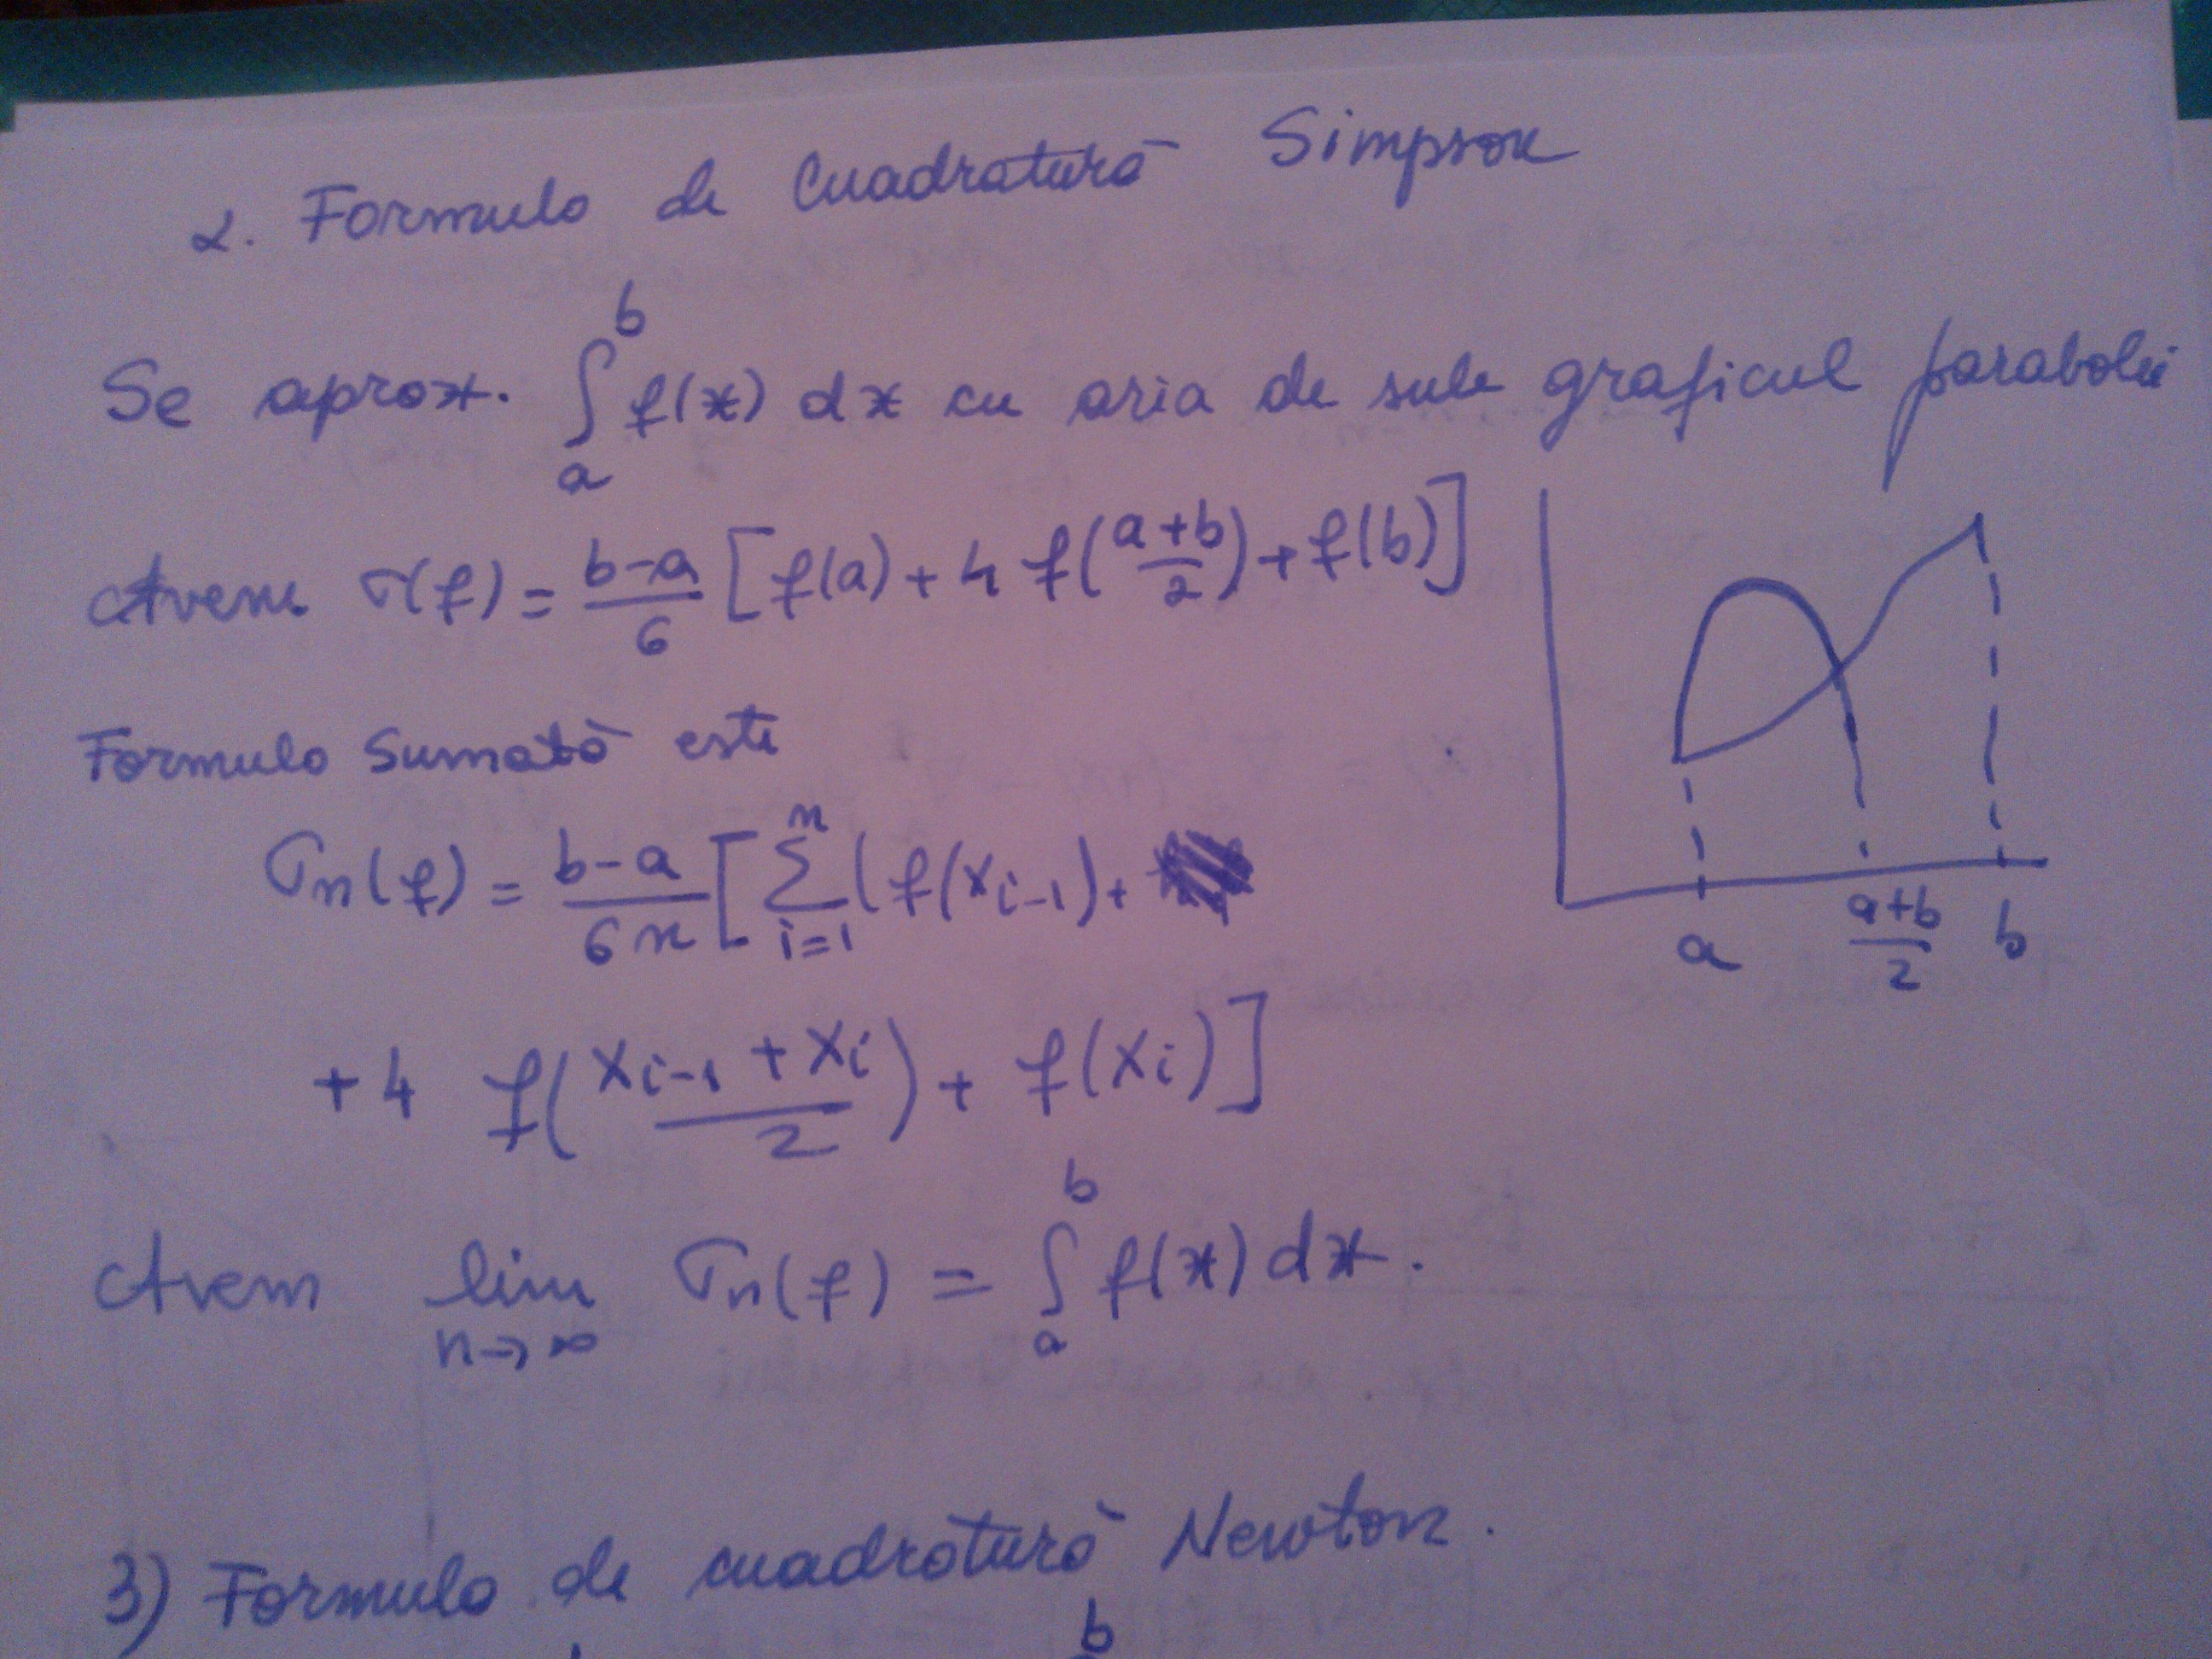 2. Formula de Cuadratură Simpson
Se aprox. ∫_a^b f(x) dx cu aria de sub graficul parabolei
Avem σ(f) = (b-a)/6 [f(a) + 4 f((a+b)/2) + f(b)]
Formula Sumată este
σn(f) = (b-a)/(6n) [∑_{i=1}^n (f(x_{i-1}) +
+ 4 f((x_{i-1} + x_i)/2) + f(x_i)]
a
(a+b)/2
b
Avem lim_{n→∞} σn(f) = ∫_a^b f(x) dx.
3) Formula de cuadratură Newton.
b